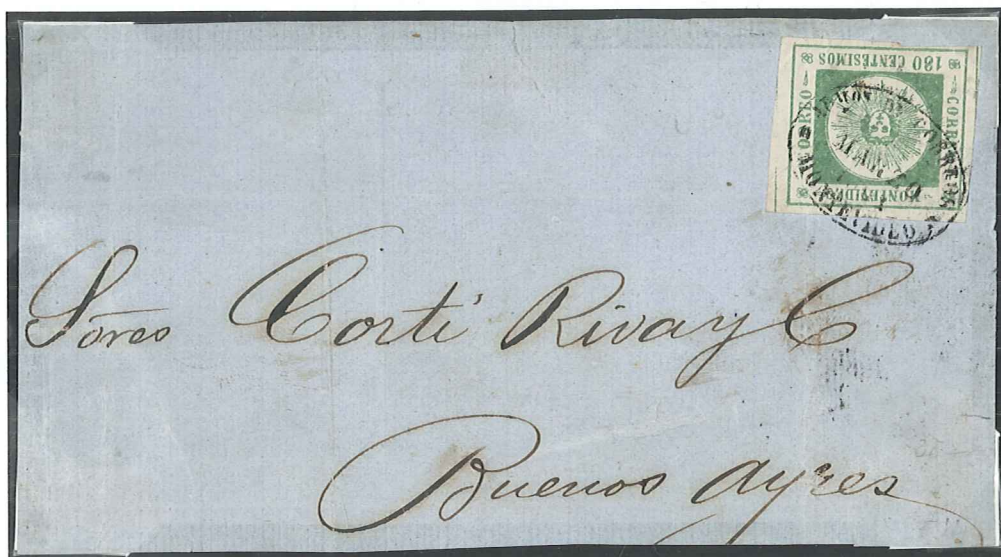 180 CENTÉSIMOS
CORREO
CORREO
MONTEVIDEO
MONTEVIDEO
Sōres Corti Riva y C
Buenos Ayres